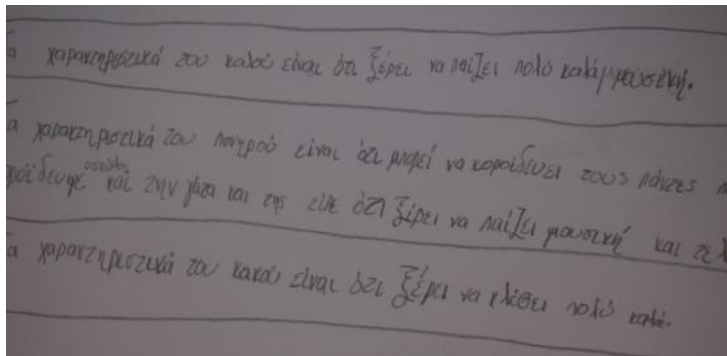 α χαρακτηριστικά του καλού είναι ότι ξέρει να παίζει πολύ καλά μουσική.
α χαρακτηριστικά του πονηρού είναι ότι μπορεί να κοροϊδευει τους πάντες
ροϊδεψε και την γατα και της είπε ότι ξέρει να παίζει μουσική και τελ
α χαρακτηριστικά του κακού είναι ότι ξέρει να κλέθει πολύ καλά.